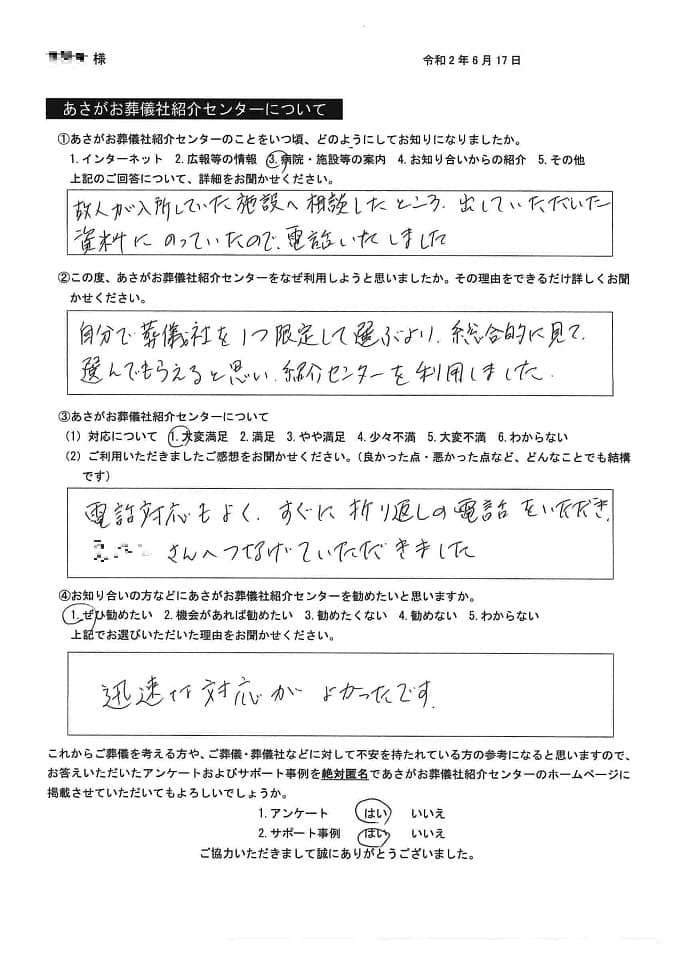 様
令和2年6月17日
あさがお葬儀社紹介センターについて
①あさがお葬儀社紹介センターのことをいつ頃、どのようにしてお知りになりましたか。
1.インターネット 2.広報等の情報 3.病院・施設等の案内 4.お知り合いからの紹介 5.その他
上記のご回答について、詳細をお聞かせください。
故人が入所していた施設へ相談したところ、出していただいた
資料にのっていたので、電話いたしました
②この度、あさがお葬儀社紹介センターをなぜ利用しようと思いましたか。その理由をできるだけ詳しくお聞
かせください。
自分で葬儀社を1つ限定して選ぶより、総合的に見て、
選んでもらえると思い、紹介センターを利用しました.
③あさがお葬儀社紹介センターについて
(1) 対応について 1.大変満足 2.満足 3.やや満足 4.少々不満 5.大変不満 6.わからない
(2) ご利用いただきましたご感想をお聞かせください。(良かった点・悪かった点など、どんなことでも結構
です)
電話対応もよく、すぐに折り返しの電話をいただき、
さんへつなげていただきました
④お知り合いの方などにあさがお葬儀社紹介センターを勧めたいと思いますか。
1.ぜひ勧めたい 2.機会があれば勧めたい 3.勧めたくない 4.勧めない 5.わからない
上記でお選びいただいた理由をお聞かせください。
迅速な対応がよかったです.
これからご葬儀を考える方や、ご葬儀・葬儀社などに対して不安を持たれている方の参考になると思いますので、
お答えいただいたアンケートおよびサポート事例を絶対匿名であさがお葬儀社紹介センターのホームページに
掲載させていただいてもよろしいでしょうか。
1.アンケート はい いいえ
2.サポート事例 はい いいえ
ご協力いただきまして誠にありがとうございました。